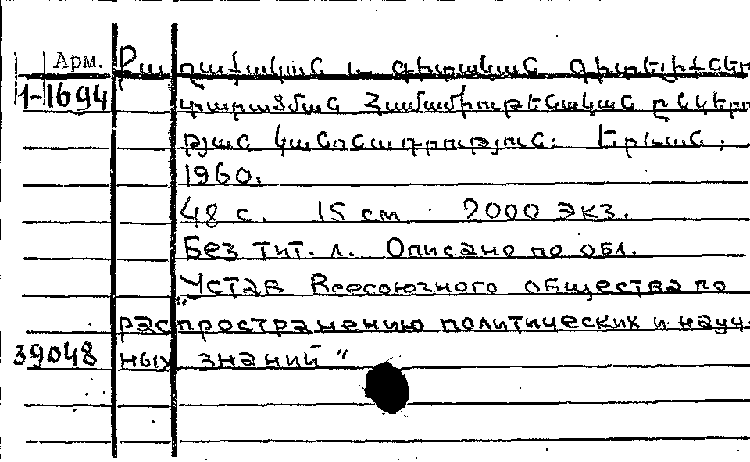 Арм. Քաղաքական և գիտական գիտելիքներ
1-1694 տարածման Համամիութենական ընկեր
թյան կանոնադրություն: Երևան,
1960.
48 с. 15 см 2000 экз.
Без тит. л. Описано по обл.
"Устав Всесоюзного общества по
распространению политических и науч-
39048 ных знаний"